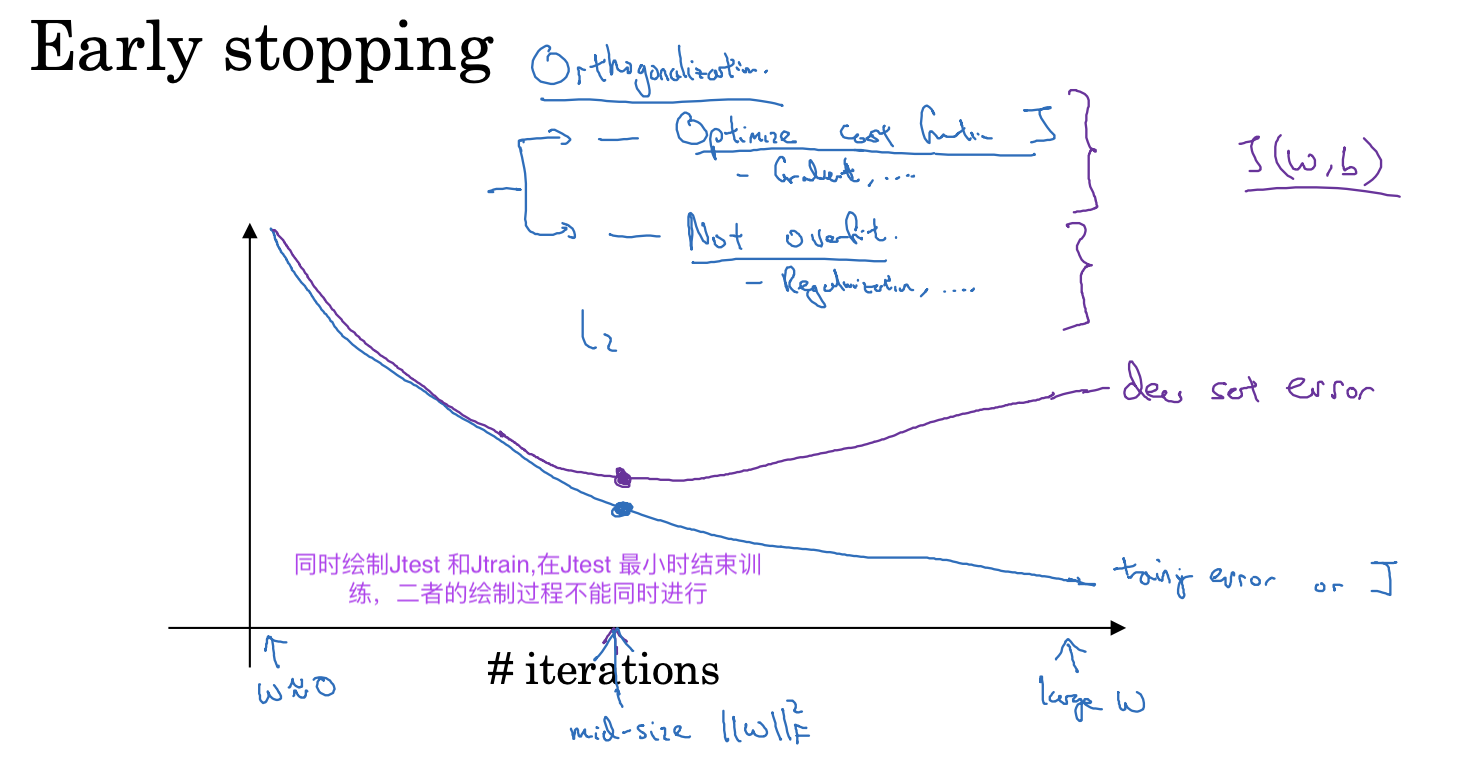 Early stopping
Orthogonalization.
— Optimize cost function J
- Gradient, ....
J(w,b)
— Not overfit.
- Regularization, ....
L2
dev set error
同时绘制Jtest 和Jtrain,在Jtest 最小时结束训
练，二者的绘制过程不能同时进行
training error or J
# iterations
w≈0
large w
mid-size ||w||²_F